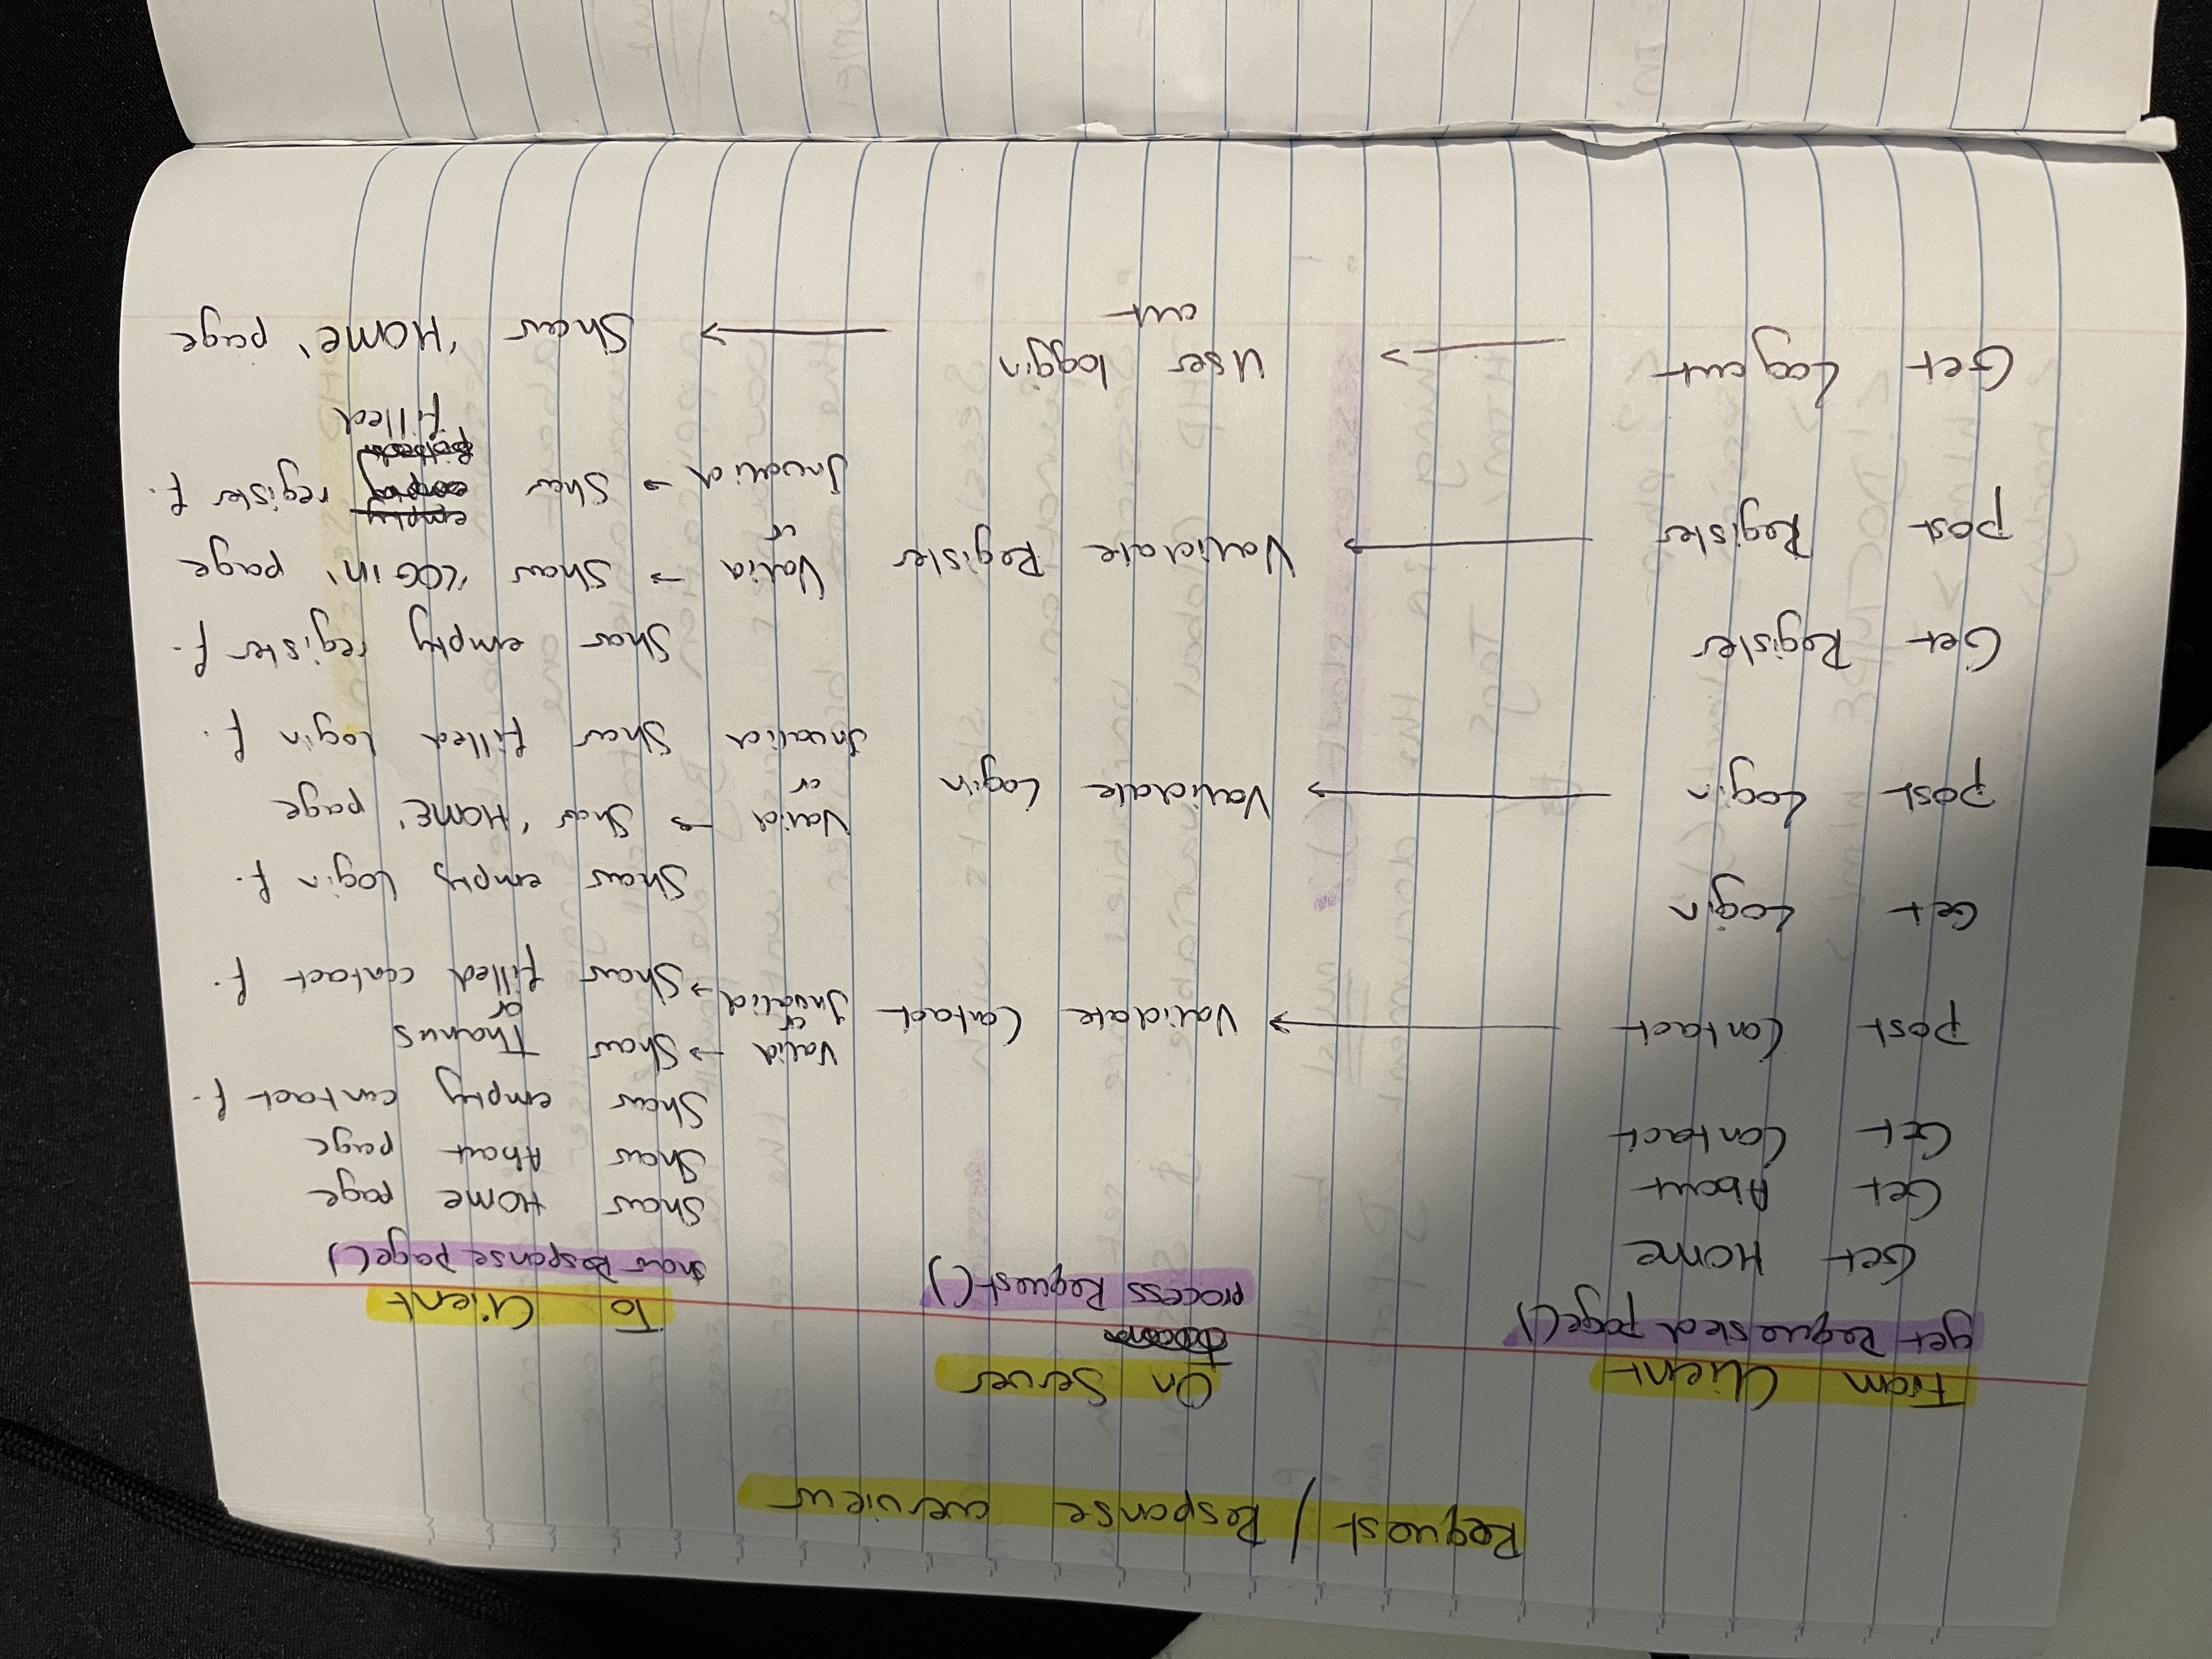 Request / Response overview
From Client On Server To Client
get Requested page() process Request() show Response page()
Get Home Show Home page
Get About Show About page
Get Contact Show empty contact f.
Post Contact → Validate Contact Valid → Show Thanks
or or
Invalid → Show filled contact f.
Get Login Show empty login f.
Post Login → Validate Login Valid → Show 'HOME' page
or
Invalid Show filled login f.
Get Register Show empty register f.
Post Register → Validate Register Valid → Show 'LOG in' page
or
Invalid → Show empty register f.
filled
Get Log out → User loggin → Show 'HOME' page
out